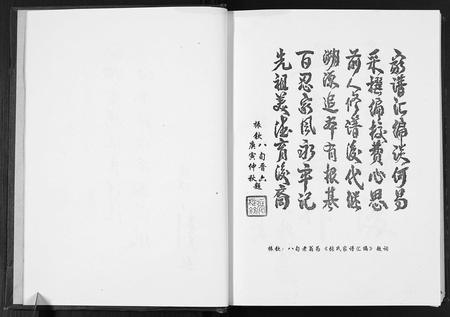 家谱汇编谈何易
采撰编校费心思
前人修谱後代继
溯源追本有根基
百忍家风永牢记
先祖美德育後裔
张钦八旬晋六题
庚寅仲秋
张钦：八旬老翁为《张氏家谱汇编》题词